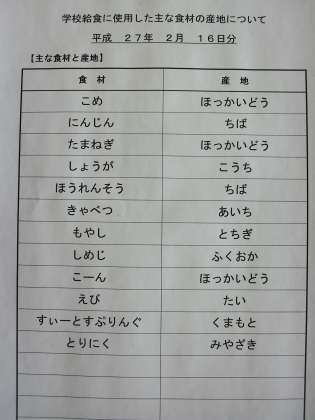 学校給食に使用した主な食材の産地について
平成 27年 2月 16日分
【主な食材と産地】
食 材 産 地
こめ ほっかいどう
にんじん ちば
たまねぎ ほっかいどう
しょうが こうち
ほうれんそう ちば
きゃべつ あいち
もやし とちぎ
しめじ ふくおか
こーん ほっかいどう
えび たい
すぃーとすぷりんぐ くまもと
とりにく みやざき